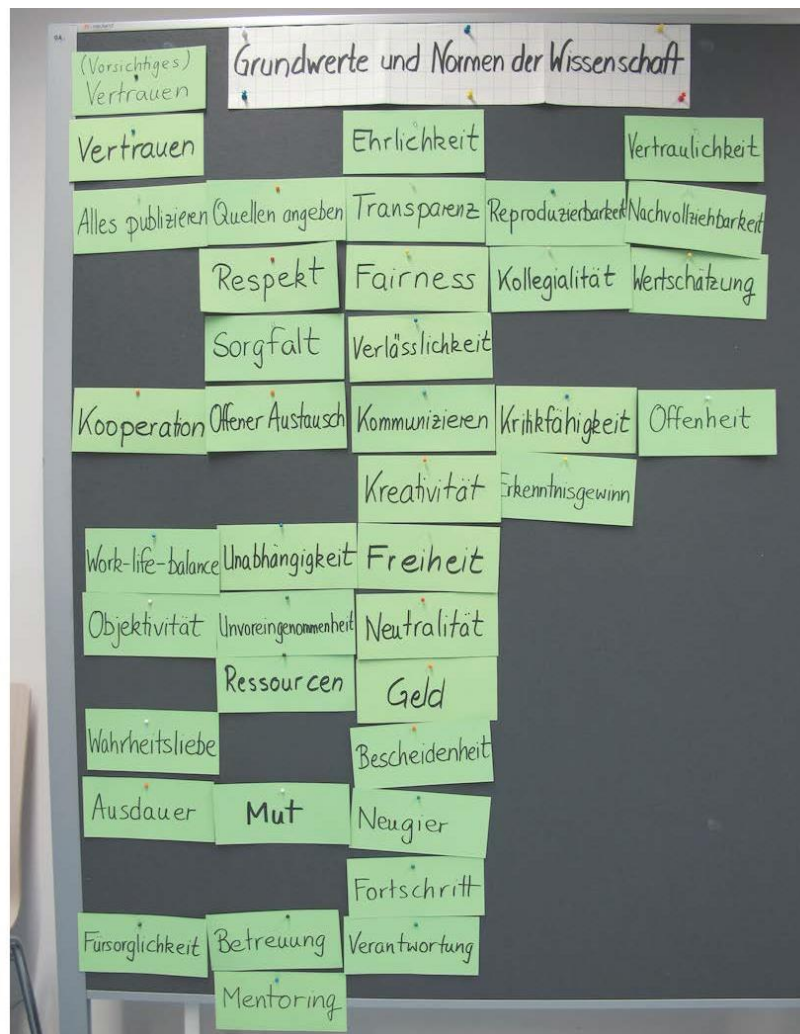 Grundwerte und Normen der Wissenschaft
(Vorsichtiges)
Vertrauen
Vertrauen
Ehrlichkeit
Vertraulichkeit
Alles publizieren
Quellen angeben
Transparenz
Reproduzierbarkeit
Nachvollziehbarkeit
Respekt
Fairness
Kollegialität
Wertschätzung
Sorgfalt
Verlässlichkeit
Kooperation
Offener Austausch
Kommunizieren
Kritikfähigkeit
Offenheit
Kreativität
Erkenntnisgewinn
Work-life-balance
Unabhängigkeit
Freiheit
Objektivität
Unvoreingenommenheit
Neutralität
Ressourcen
Geld
Wahrheitsliebe
Bescheidenheit
Ausdauer
Mut
Neugier
Fortschritt
Fürsorglichkeit
Betreuung
Verantwortung
Mentoring